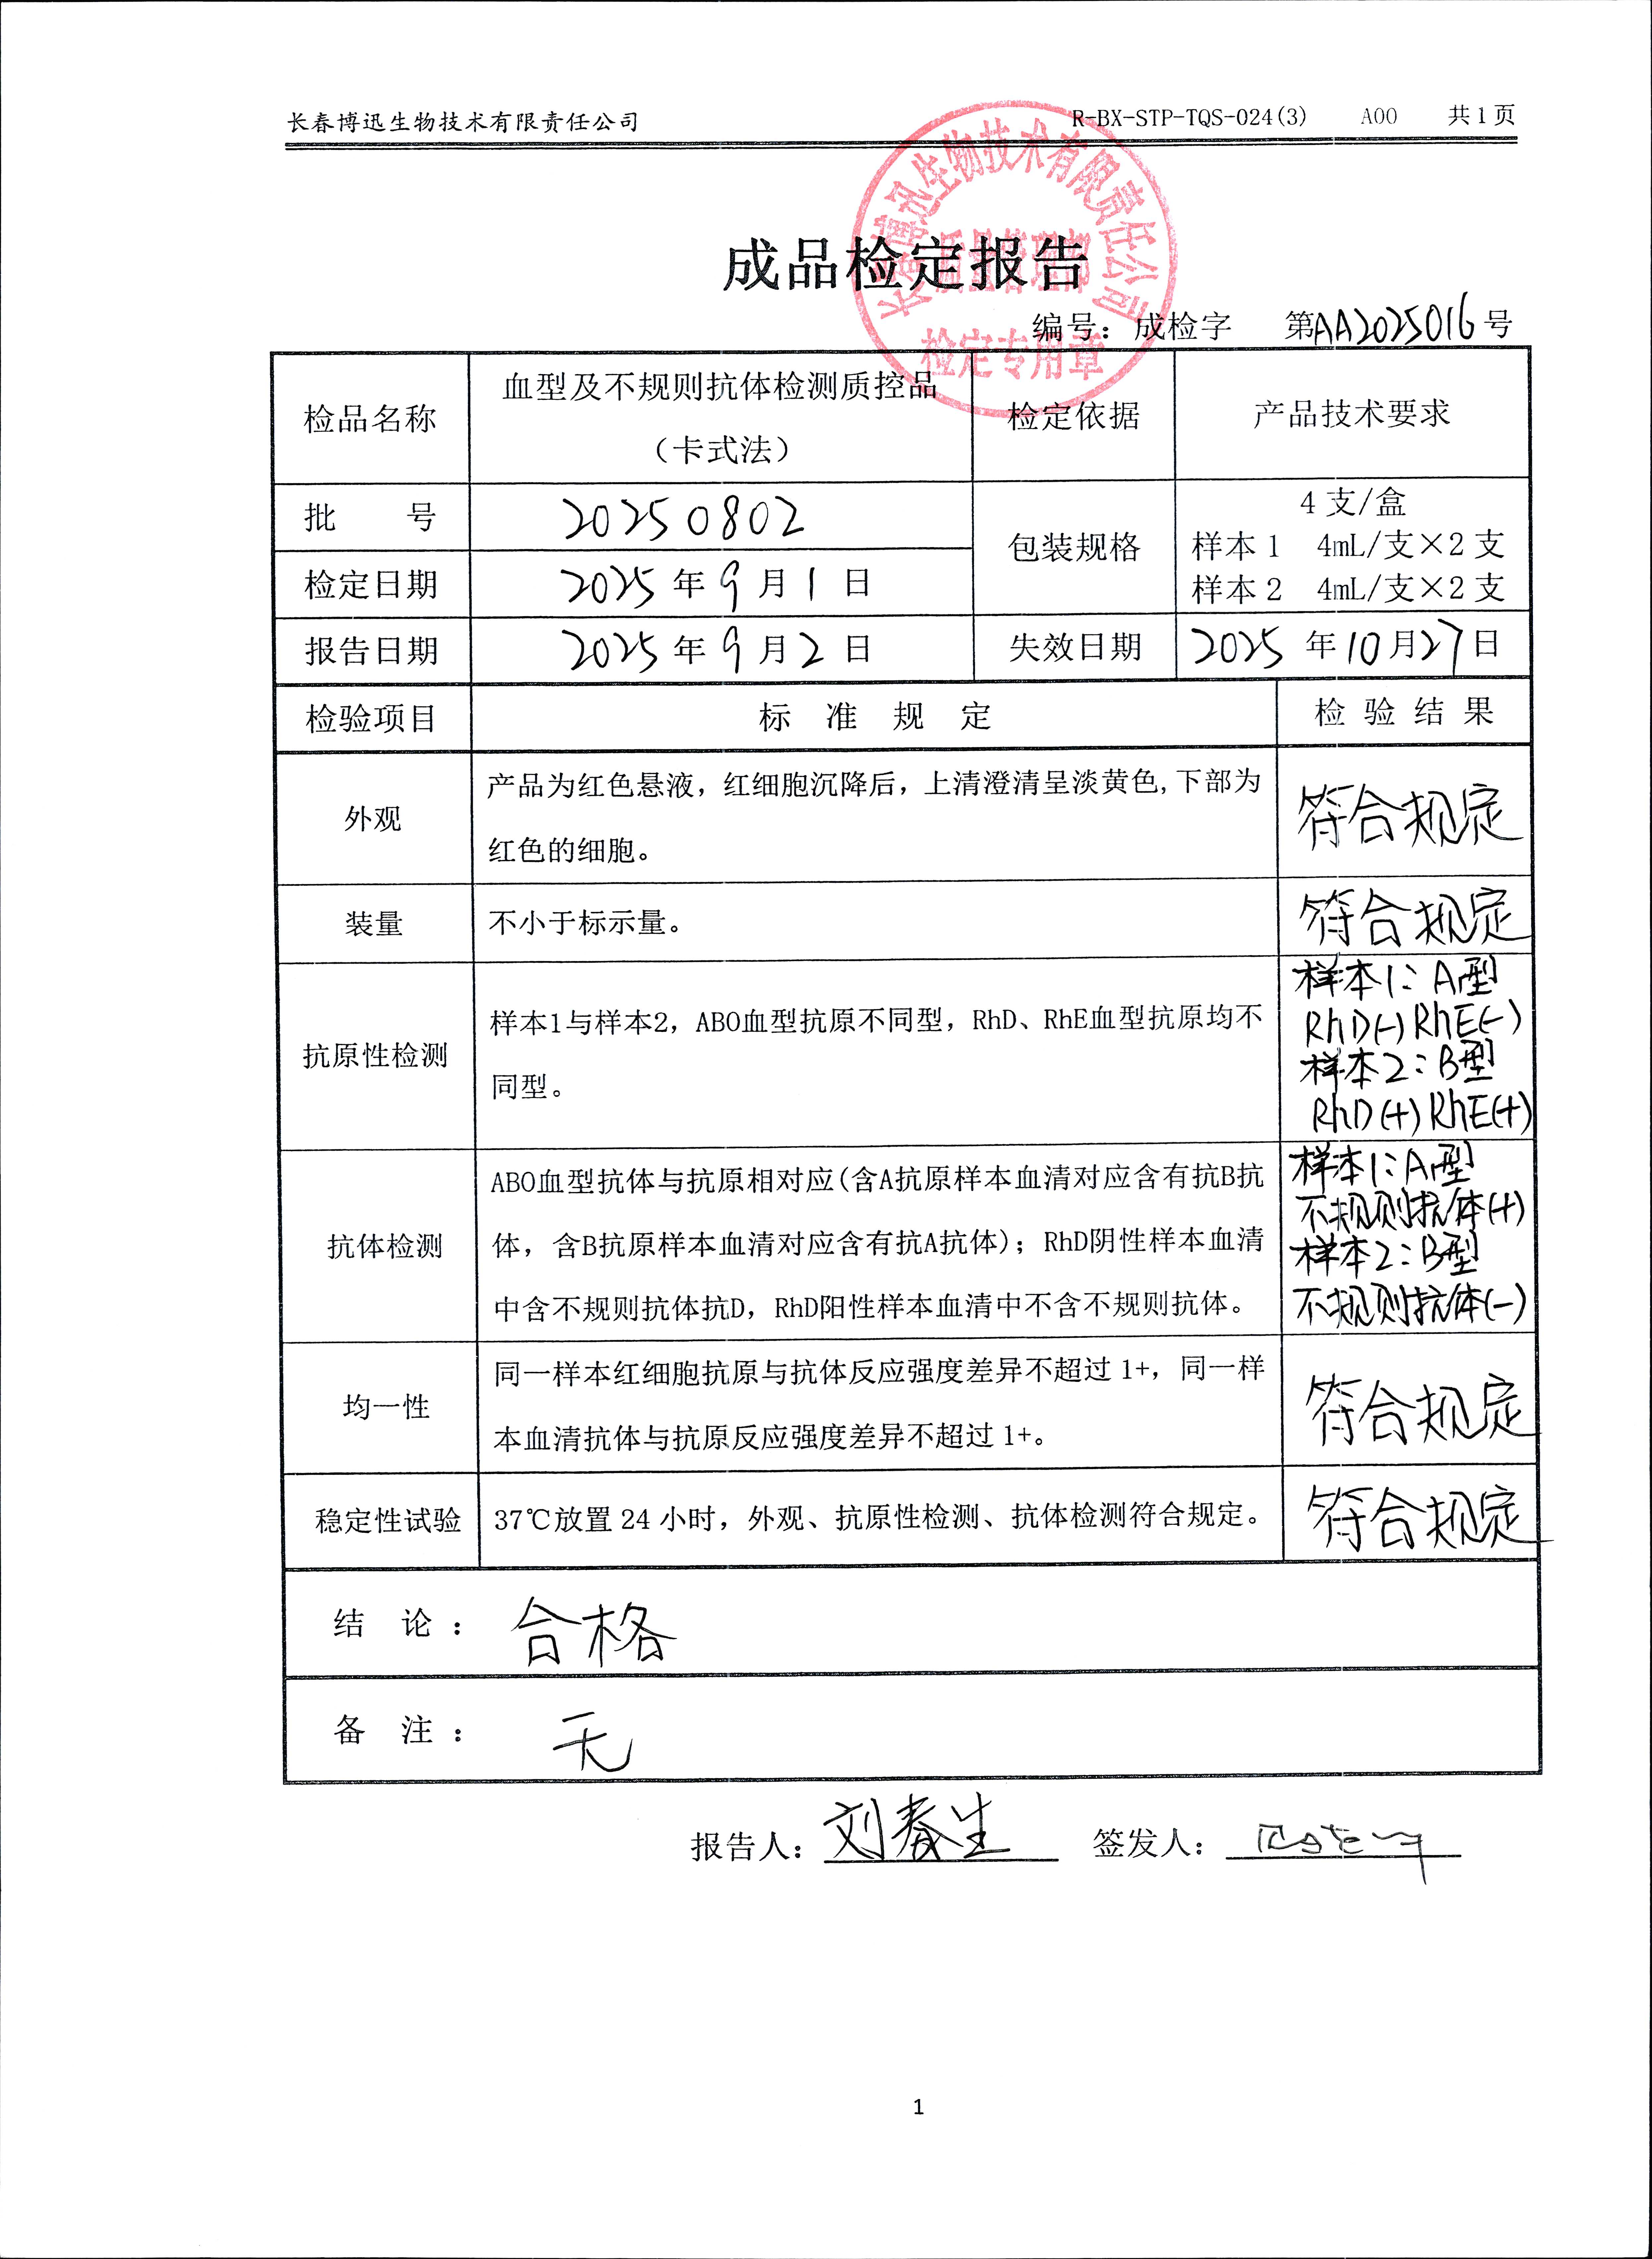 长春博迅生物技术有限责任公司 R-BX-STP-TQS-024(3) A00 共1页
长春博迅生物技术有限责任公司
质量管理部
检定专用章
成品检定报告
编号：成检字 第AA2025016号
检品名称
血型及不规则抗体检测质控品
（卡式法）
检定依据
产品技术要求
批 号
20250802
包装规格
4支/盒
样本1 4mL/支×2支
样本2 4mL/支×2支
检定日期
2025年9月1日
报告日期
2025年9月2日
失效日期
2025年10月27日
检验项目
标 准 规 定
检 验 结 果
外观
产品为红色悬液，红细胞沉降后，上清澄清呈淡黄色,下部为
红色的细胞。
符合规定
装量
不小于标示量。
符合规定
抗原性检测
样本1与样本2，ABO血型抗原不同型，RhD、RhE血型抗原均不
同型。
样本1：A型
RhD(-) RhE(-)
样本2：B型
RhD(+) RhE(+)
抗体检测
ABO血型抗体与抗原相对应(含A抗原样本血清对应含有抗B抗
体，含B抗原样本血清对应含有抗A抗体)；RhD阴性样本血清
中含不规则抗体抗D，RhD阳性样本血清中不含不规则抗体。
样本1：A型
不规则抗体(+)
样本2：B型
不规则抗体(-)
均一性
同一样本红细胞抗原与抗体反应强度差异不超过1+，同一样
本血清抗体与抗原反应强度差异不超过1+。
符合规定
稳定性试验
37℃放置24小时，外观、抗原性检测、抗体检测符合规定。
符合规定
结 论：合格
备 注：无
报告人：刘春生 签发人：
1